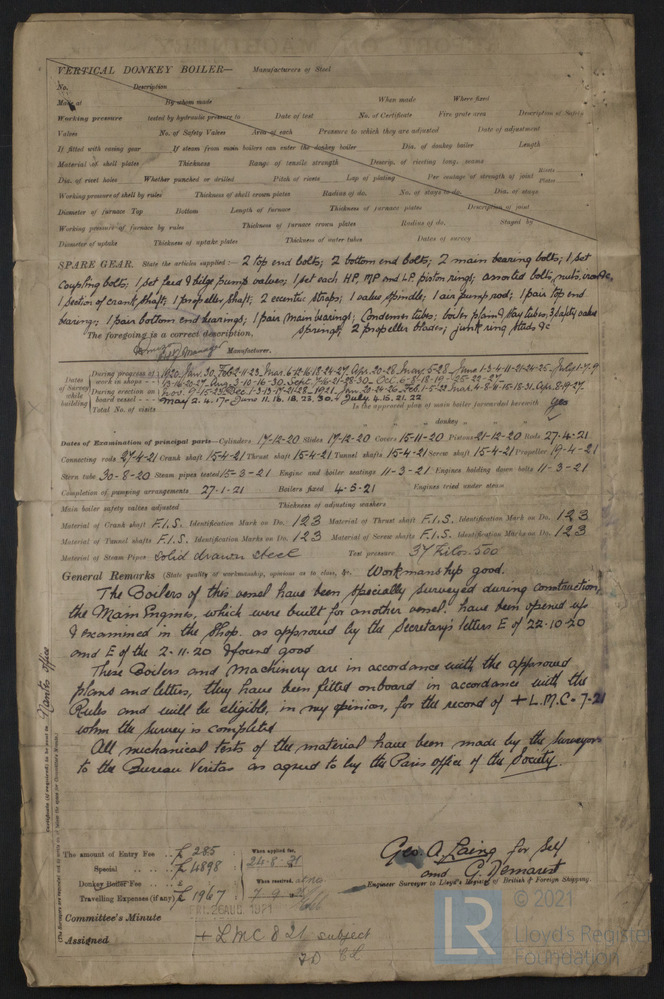 VERTICAL DONKEY BOILER— Manufacturers of Steel
No. Description
Made at By whom made When made Where fixed
Working pressure tested by hydraulic pressure to Date of test No. of Certificate Fire grate area Description of Safety
Valves No. of Safety Valves Area of each Pressure to which they are adjusted Date of adjustment
If fitted with casing gear If steam from main boilers can enter the donkey boiler Dia. of donkey boiler Length
Material of shell plates Thickness Range of tensile strength Descrip. of riveting long. seams
Dia. of rivet holes Whether punched or drilled Pitch of rivets Lap of plating Per centage of strength of joint Rivets Plates
Working pressure of shell by rules Thickness of shell crown plates Radius of do. No. of stays to do. Dia. of stays
Diameter of furnace Top Bottom Length of furnace Thickness of furnace plates Description of joint
Working pressure of furnace by rules Thickness of furnace crown plates Radius of do. Stayed by
Diameter of uptake Thickness of uptake plates Thickness of water tubes Dates of survey
SPARE GEAR. State the articles supplied:— 2 top end bolts; 2 bottom end bolts; 2 main bearing bolts; 1 set
coupling bolts; 1 set feed & bilge pump valves; 1 set each HP, MP and LP piston rings; assorted bolts, nuts, iron &c,
1 section of crank shaft; 1 propeller shaft; 2 eccentric straps; 1 valve spindle; 1 air pump rod; 1 pair top end
bearings; 1 pair bottom end bearings; 1 pair main bearings; Condenser tubes; boiler plain & stay tubes; 3 safety valve
springs, 2 propeller blades; junk ring studs &c
The foregoing is a correct description,
Manufacturer.
Dates of Survey while building
During progress of work in shops -- 1920 Jan. 30, Feb. 2-11-23, Mar. 6-12-16-18-24-27, Apr. 20-28, May. 5-28, June 1-3-4-11-21-24-25, July 1-7-9
During erection on board vessel ---
May 2. 4. 17 - June 11. 16. 18. 23. 30. - July 4. 15. 21. 22
Total No. of visits
Is the approved plan of main boiler forwarded herewith Yes
" " " donkey " "
Dates of Examination of principal parts—Cylinders 17-12-20 Slides 17-12-20 Covers 15-11-20 Pistons 21-12-20 Rods 27-4-21
Connecting rods 27-4-21 Crank shaft 15-4-21 Thrust shaft 15-4-21 Tunnel shafts 15-4-21 Screw shaft 15-4-21 Propeller 19-4-21
Stern tube 30-8-20 Steam pipes tested 15-3-21 Engine and boiler seatings 11-3-21 Engines holding down bolts 11-3-21
Completion of pumping arrangements 27-1-21 Boilers fixed 4-5-21 Engines tried under steam
Main boiler safety valves adjusted Thickness of adjusting washers
Material of Crank shaft F.I.S. Identification Mark on Do. 123 Material of Thrust shaft F.I.S. Identification Mark on Do. 123
Material of Tunnel shafts F.I.S. Identification Marks on Do. 123 Material of Screw shafts F.I.S. Identification Marks on Do. 123
Material of Steam Pipes Solid drawn steel Test pressure 37 Kilos. 500
General Remarks (State quality of workmanship, opinions as to class, &c. Workmanship good.
The Boilers of this vessel have been specially surveyed during construction,
the Main Engines, which were built for another vessel. have been opened up
& examined in the Shop. as approved by the Secretary's letters E of 22-10-20
and E of the 2-11-20 & found good
These Boilers and Machinery are in accordance with the approved
plans and letters, they have been fitted onboard in accordance with the
Rules and will be eligible, in my opinion, for the record of + L.M.C - 7-21
when the survey is completed
All mechanical tests of the material have been made by the surveyors
to the Bureau Veritas as agreed to by the Paris office of the Society.
Nantes office
The amount of Entry Fee .. £ 285
Special .. £ 4898
Donkey Boiler Fee .. £
Travelling Expenses (if any) £ 1967
When applied for, 24-8-21
When received, 7-9-21
Geo. A. Laing for Self
and G. Demarest
Engineer Surveyor to Lloyd's Register of British & Foreign Shipping.
Committee's Minute FRI. 26 AUG. 1921
Assigned + LMC 8 21 subject
© 2021
LR
Lloyd's Register
Foundation